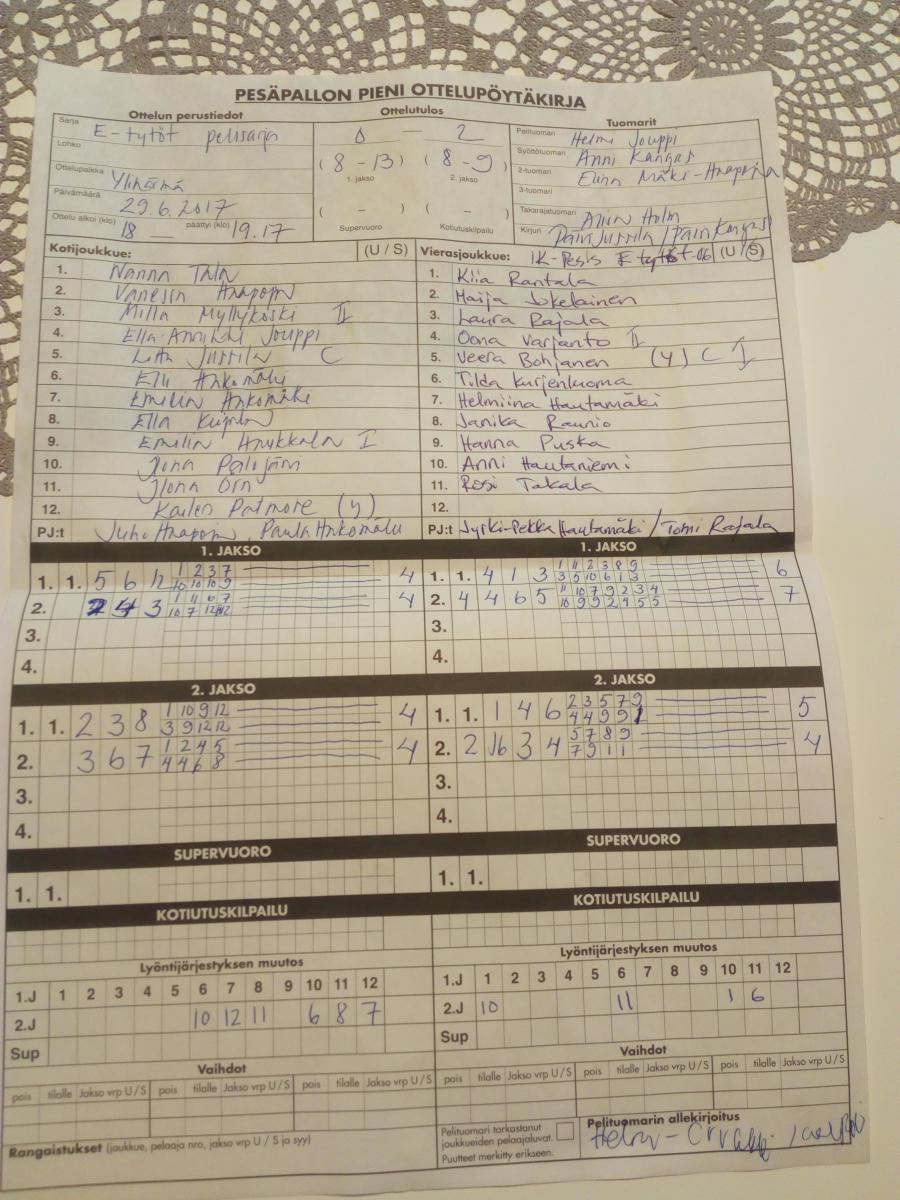 PESÄPALLON PIENI OTTELUPÖYTÄKIRJA
Ottelun perustiedot
Sarja E-tytöt pelisarja
Lohko
Ottelupaikka Ylihärmä
Päivämäärä 29.6.2017
Ottelu alkoi (klo) 18 päättyi (klo) 19.17
Ottelutulos
0 — 2
(8 - 13) (8 - 9)
1. jakso 2. jakso
( - ) ( - )
Supervuoro Kotiutuskilpailu
Tuomarit
Pelituomari Helmi Jouppi
Syöttötuomari Anni Kangas
2-tuomari Elina Mäki-Haapoja
3-tuomari
Takarajatuomari Holm
Kirjuri
Kotijoukkue: (U / S)
1. Nanna
2. Vanessa Haapoja
3. Milla Myllykoski II
4. Ella-Annikki Jouppi
5. Jussila C
6. Ankomähi
7. Emilia
8. Ella
9. Emilia I
10.
11. Ilona Örn
12. Patmore (y)
PJ:t Juho Haapoja,
Vierasjoukkue: IK-Pesis E tytöt-06 (U / S)
1. Kiia Rantala
2. Maija Jokelainen
3. Laura Rajala
4. Oona Varjanto II
5. Veera Bohjanen (y) C I
6. Tilda Kurjenluoma
7. Helmiina Hautamäki
8. Janika Raunio
9. Hanna Puska
10. Anni Hautaniemi
11. Rosi Takala
12.
PJ:t Jyrki-Pekka Hautamäki / Tomi Rajala
1. JAKSO
1. 1. 5 6 12 1 2 3 7 4
10 10 10 9
2. 3 1 11 6 7 4
10 7 12 12
3.
4.
1. JAKSO
1. 1. 4 1 3 1 11 2 3 8 9 6
3 5 10 6 1 3
2. 4 4 6 5 11 10 7 9 2 3 4 7
10 9 9 2 4 5 5
3.
4.
2. JAKSO
1. 1. 2 3 8 1 10 9 12 4
3 9 12 12
2. 3 6 7 1 2 4 5 4
4 4 6 8
3.
4.
2. JAKSO
1. 1. 1 4 6 2 3 5 7 9 5
4 4 9 9 1
2. 2 3 4 5 7 8 9 4
7 9 1 1
3.
4.
SUPERVUORO
1. 1.
SUPERVUORO
1. 1.
KOTIUTUSKILPAILU
KOTIUTUSKILPAILU
Lyöntijärjestyksen muutos
1.J 1 2 3 4 5 6 7 8 9 10 11 12
2.J 10 12 11 6 8 7
Sup
Lyöntijärjestyksen muutos
1.J 1 2 3 4 5 6 7 8 9 10 11 12
2.J 10 11 1 6
Sup
Vaihdot
pois tilalle Jakso vrp U / S pois tilalle Jakso vrp U / S pois tilalle Jakso vrp U / S
Vaihdot
pois tilalle Jakso vrp U / S pois tilalle Jakso vrp U / S pois tilalle Jakso vrp U / S
Rangaistukset (joukkue, pelaaja nro, jakso vrp U / S ja syy)
Pelituomari tarkastanut
joukkueiden pelaajaluvat.
Puutteet merkitty erikseen.
Pelituomarin allekirjoitus